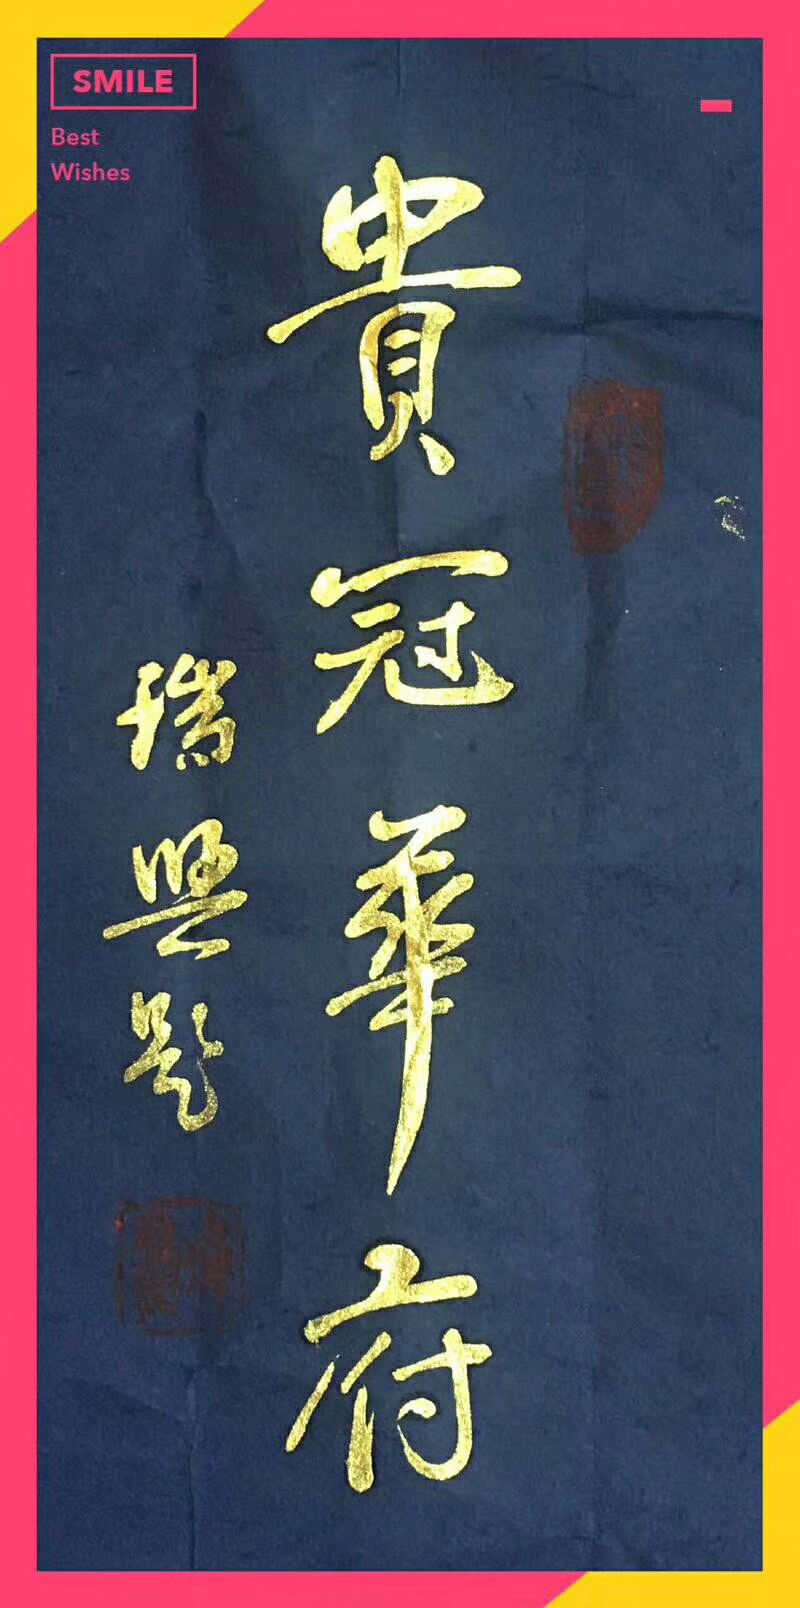 SMILE
Best
Wishes
貴冠華府
瑞興題